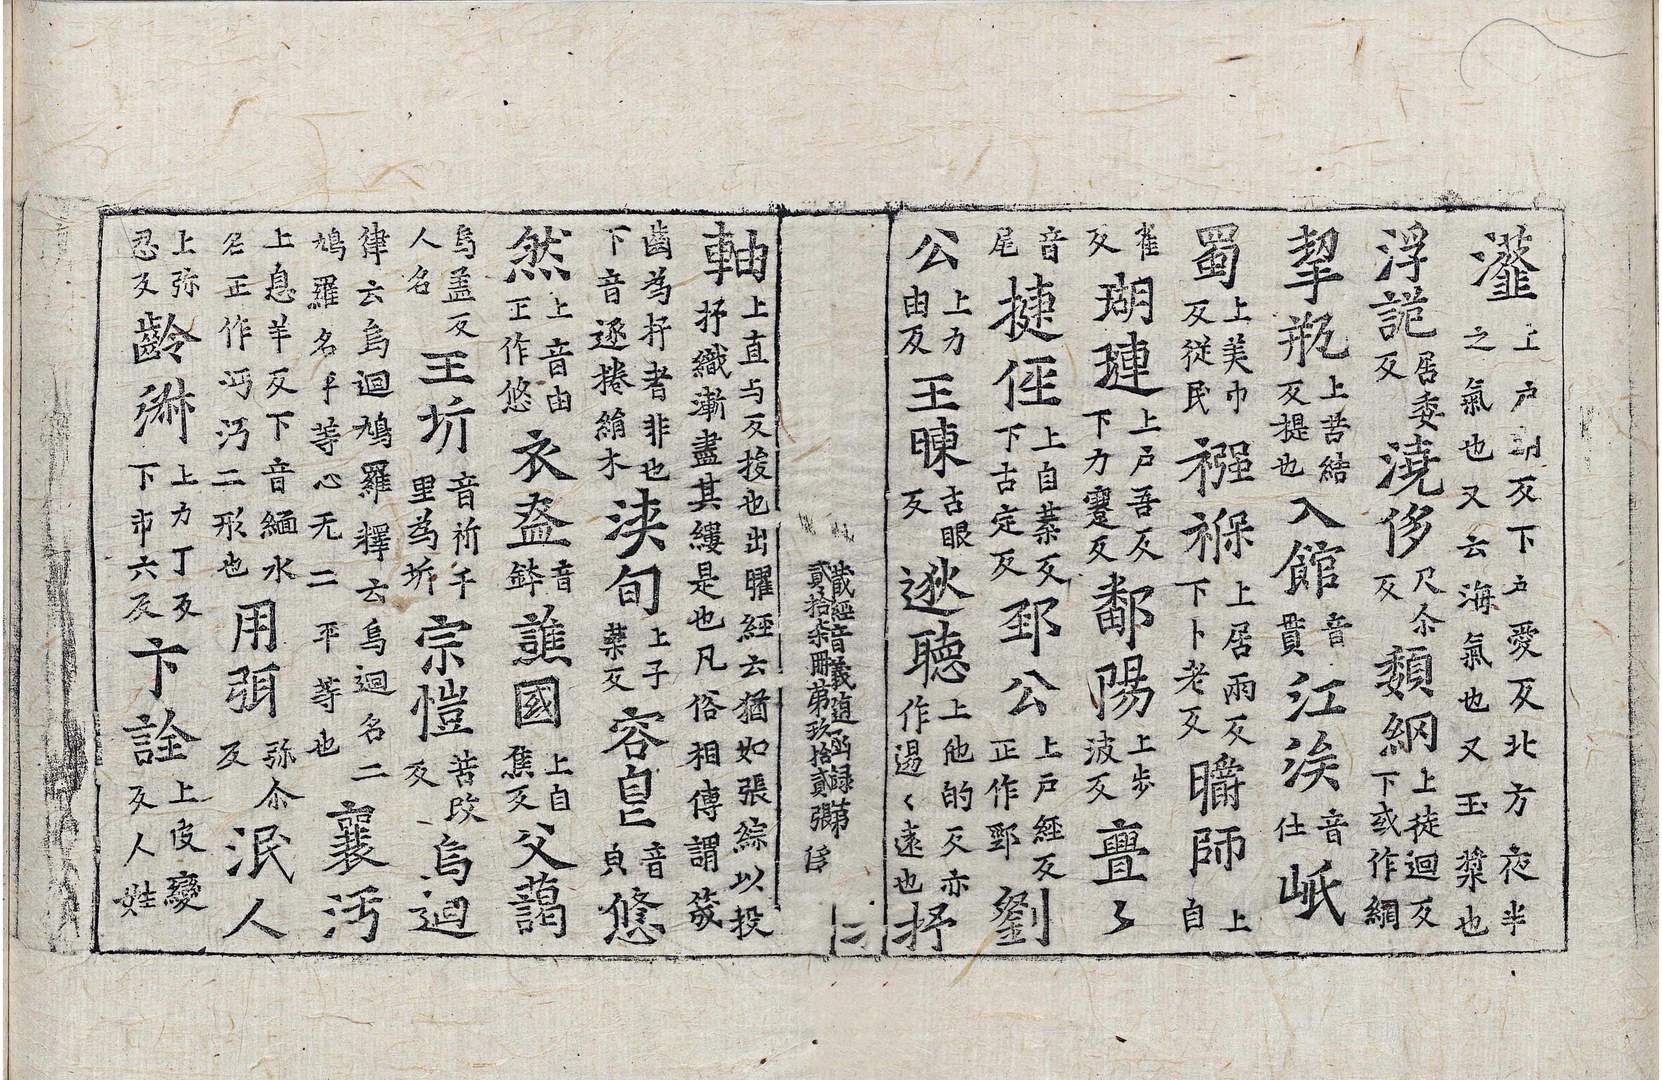 瀣上戶朗反下戶愛反北方夜半之氣也又云海氣也又玉漿也
浮詭居委反澆侈尺尒反纇網上徒迴反下或作網
挈瓶上苦結反提也入館音貫江涘音仕岷
蜀上美巾反從民襁褓上居兩反下卜老反瞻師上自
雀反瑚璉上戶吾反下力蹇反鄱陽上步波反亹〻
音尾捷徑上自葉反下古定反郅公上戶經反正作鄄劉
公上力由反王暕古眼反逖聽上他的反亦作逷〻遠也抒
藏經音義隨函録第貳拾柒冊第玖拾貳張 侔
軸上直与反捘也出曜經云猶如張綜以投抒織漸盡其縷是也凡俗相傳謂筬
齒為抒者非也下音逐捲絹木浹旬上子葉反容皃音皃悠
然上音由正作悠衣盋音鉢譙國上自焦反父藹
烏盖反人名王圻音祈千里為圻宗愷苦改反烏迴
律云烏迴鳩羅釋云烏迴名二鳩羅名平等心无二平等也襄沔
上息羊反下音緬水名正作沔沔二形也用弭弥尒反泯人
上弥忍反齡術上力丁反下市六反卞詮上皮變反人姓